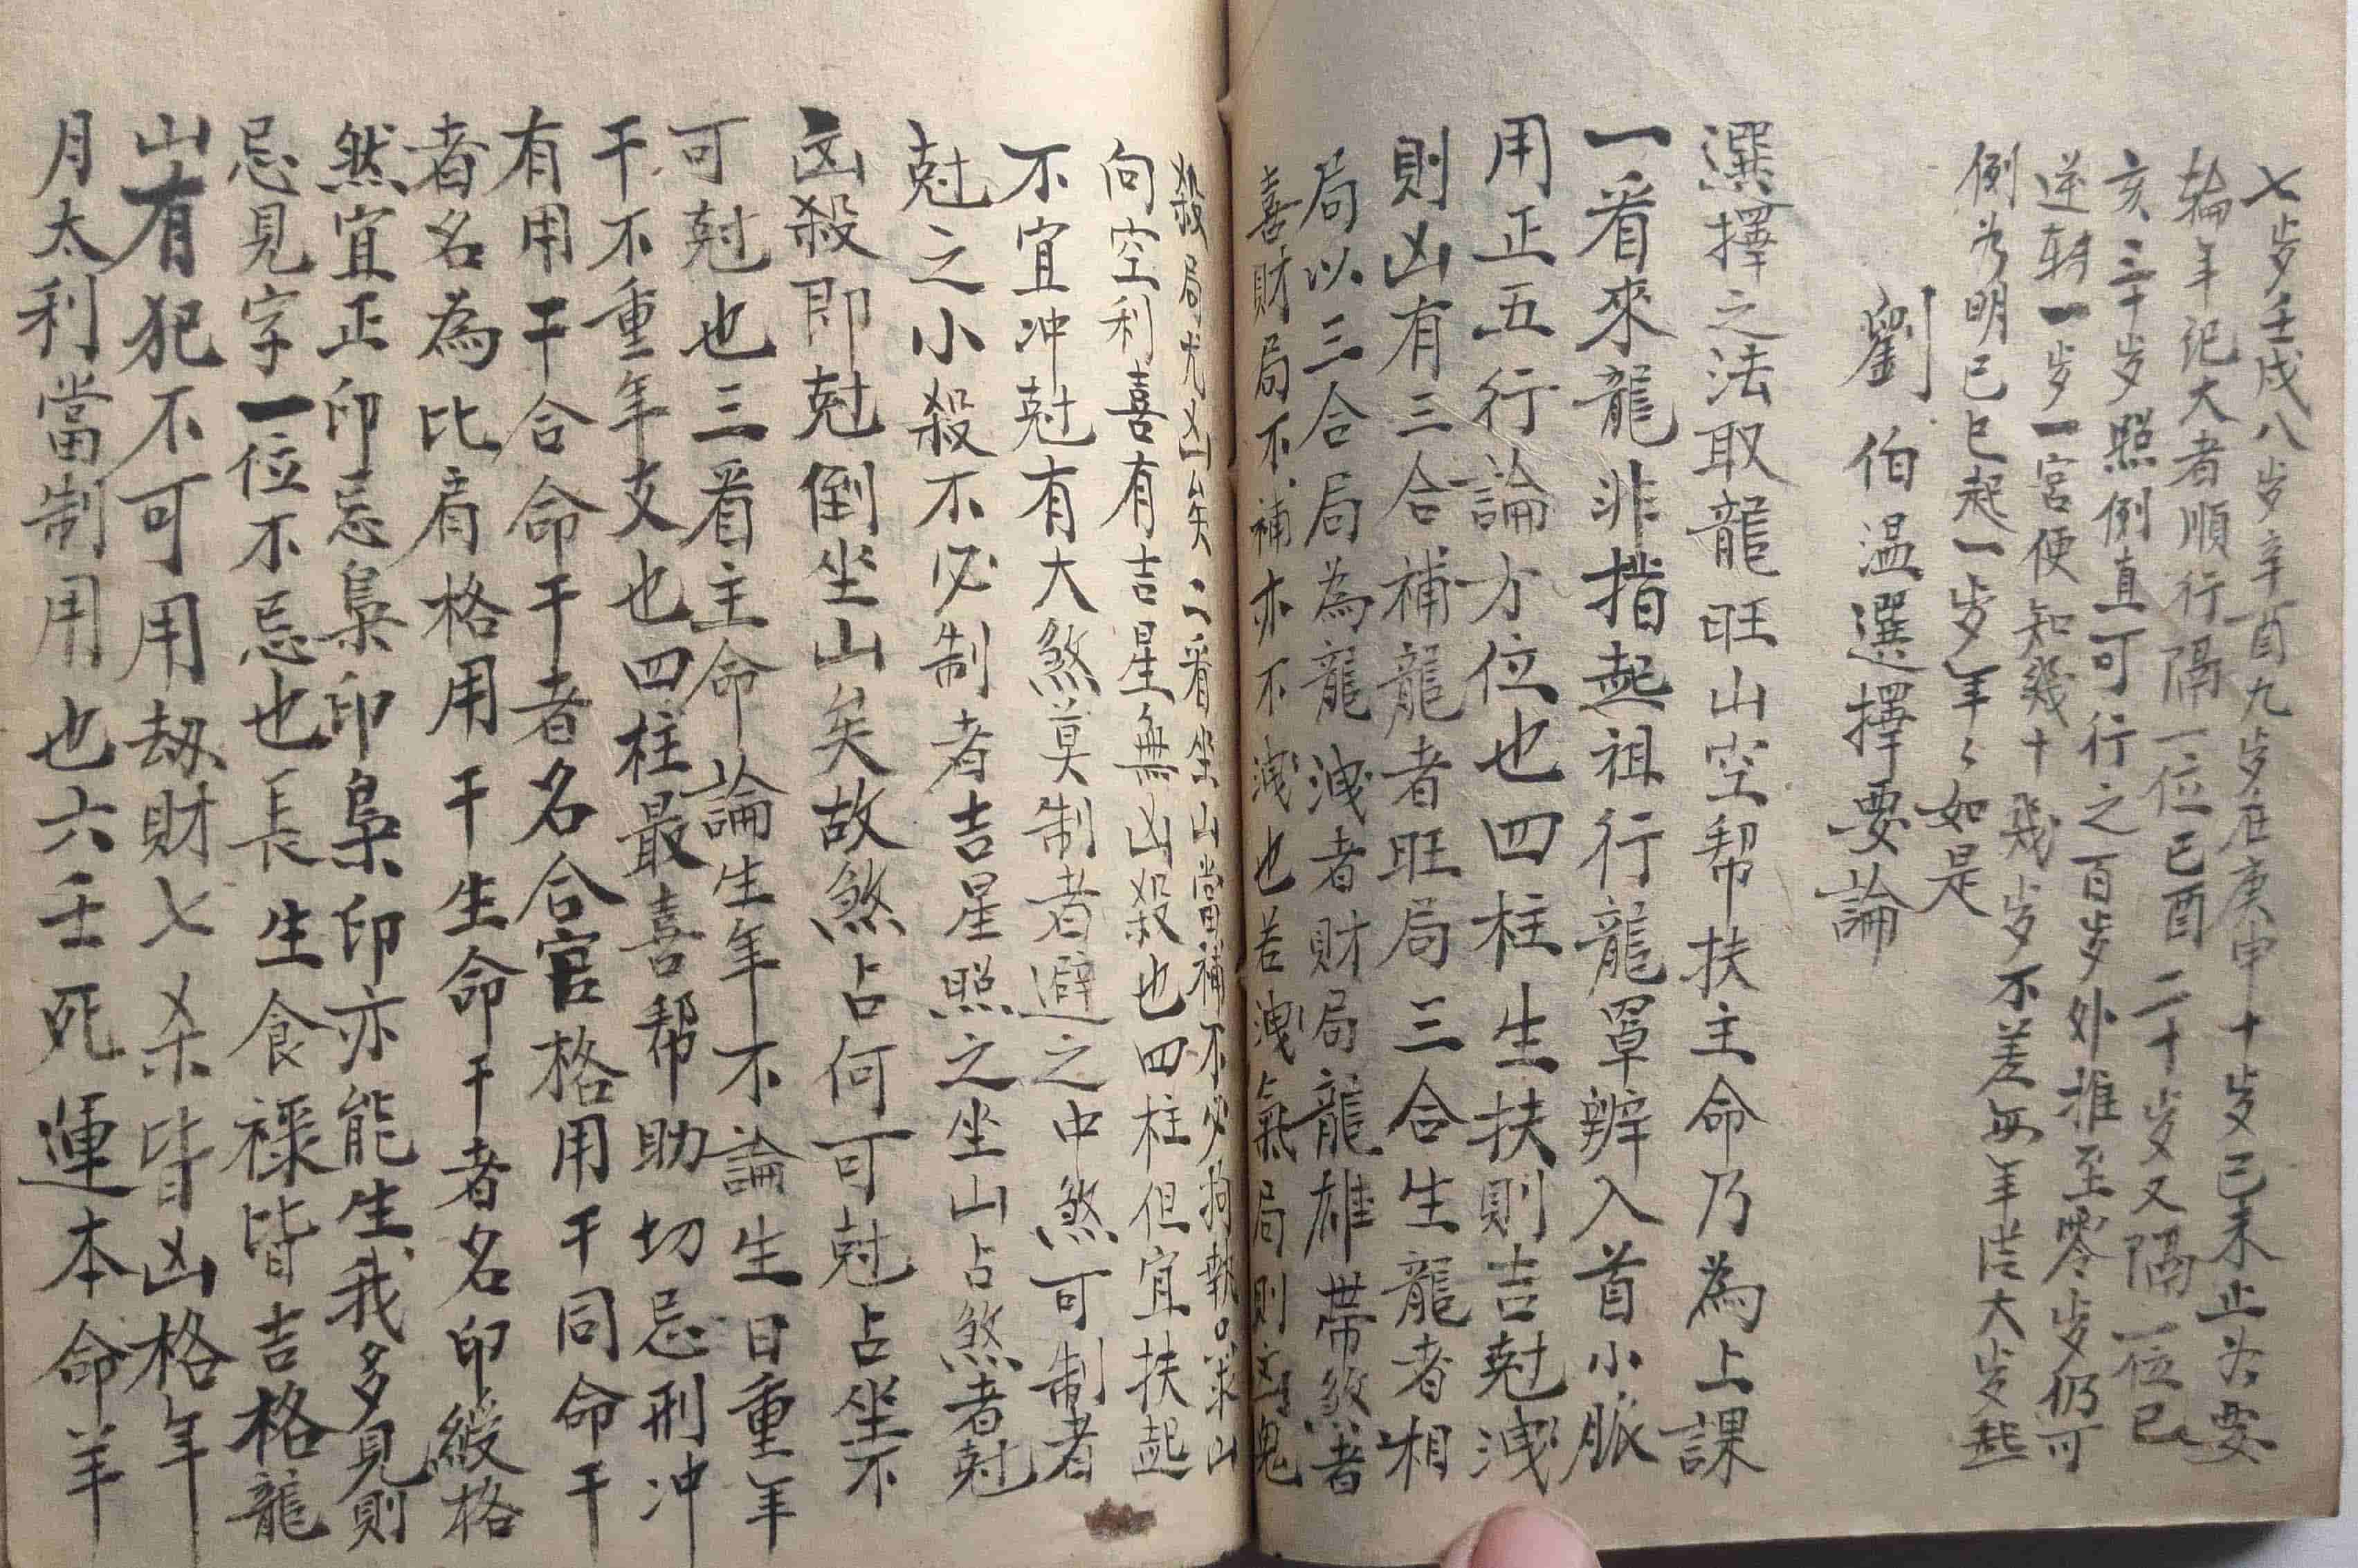 七岁壬戌八岁辛酉九岁在庚申十岁己未止若要
輪年记大者順行隔一位己酉二十岁又隔一位已
亥三十岁照例直可行之百岁外推至零岁仍可
逆轉一岁一宮便知幾十幾岁不差每年茫大岁起
例为明已巳起一岁年〻如是
劉伯温選擇要論
選擇之法取龍旺山空帮扶主命乃為上課
一看來龍非指起祖行龍單辨入首小脈
用正五行論方位也四柱生扶則吉尅洩
則凶有三合補龍者旺局三合生龍者相
局以三合局為龍洩者財局龍雄带煞者
喜財局不補亦不洩也若洩氣局則凶鬼
殺局尤凶矣二看坐山當補不必拘執只求山
向空利喜有吉星無凶殺也四柱但宜扶起
不宜冲尅有大煞莫制者避之中煞可制者
尅之小殺不必制者吉星照之坐山占煞者尅
凶殺即尅倒坐山矣故煞占何可尅占坐不
可尅也三看主命論生年不論生日重年
干不重年支也四柱最喜帮助切忌刑冲
有用干合命干者名合官格用干同命干
者名為比肩格用干生命干者名印綬格
然宜正印忌梟印梟印亦能生我多見則
忌見字一位不忌也長生食禄皆吉格龍
山有犯不可用劫財七杀皆凶格年
月太利當制用也六壬死運本命羊